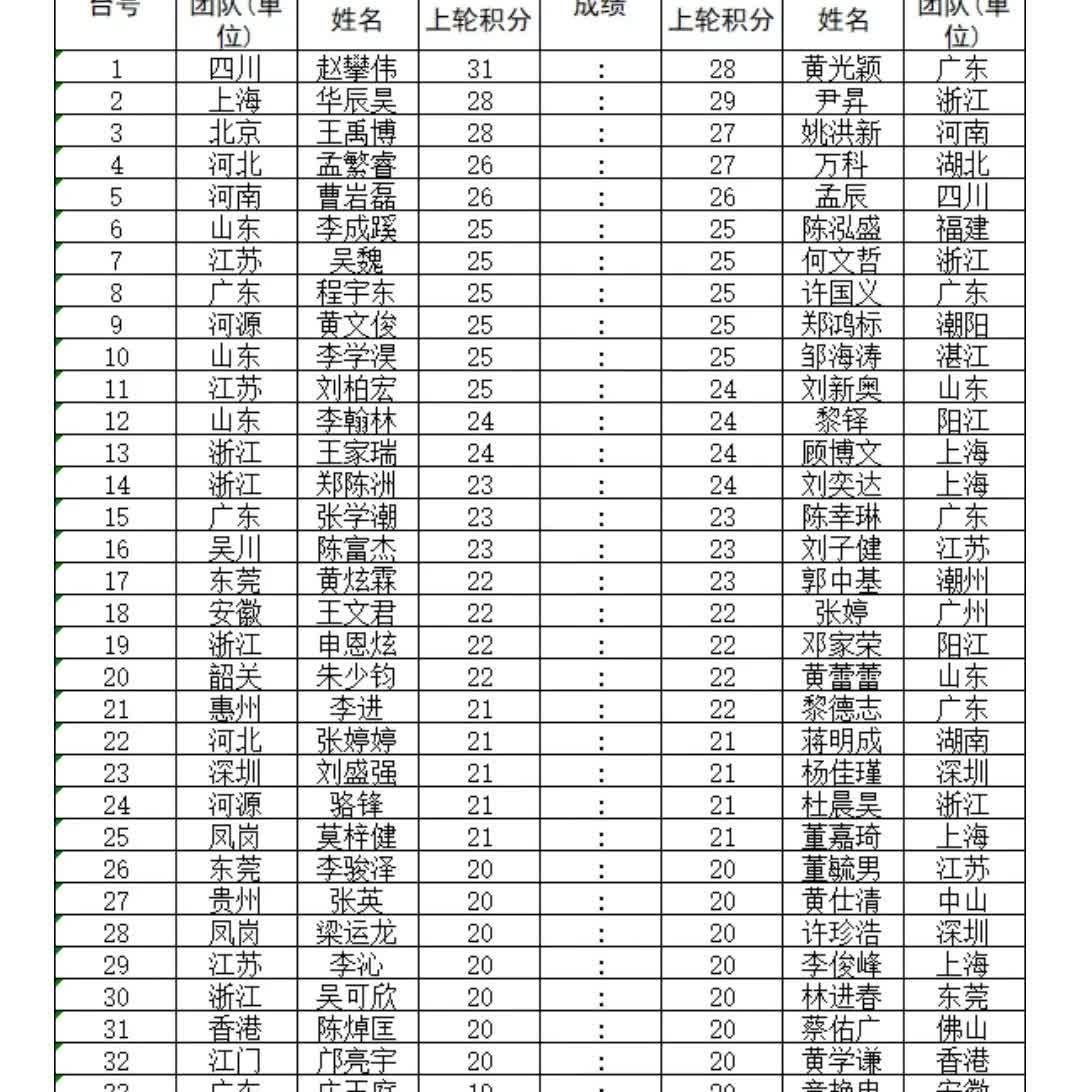 台号 团队(单位) 姓名 上轮积分 成绩 上轮积分 姓名 团队(单位)
1 四川 赵攀伟 31 : 28 黄光颖 广东
2 上海 华辰昊 28 : 29 尹昇 浙江
3 北京 王禹博 28 : 27 姚洪新 河南
4 河北 孟繁睿 26 : 27 万科 湖北
5 河南 曹岩磊 26 : 26 孟辰 四川
6 山东 李成蹊 25 : 25 陈泓盛 福建
7 江苏 吴魏 25 : 25 何文哲 浙江
8 广东 程宇东 25 : 25 许国义 广东
9 河源 黄文俊 25 : 25 郑鸿标 潮阳
10 山东 李学淏 25 : 25 邹海涛 湛江
11 江苏 刘柏宏 25 : 24 刘新奥 山东
12 山东 李翰林 24 : 24 黎铎 阳江
13 浙江 王家瑞 24 : 24 顾博文 上海
14 浙江 郑陈洲 23 : 24 刘奕达 上海
15 广东 张学潮 23 : 23 陈幸琳 广东
16 吴川 陈富杰 23 : 23 刘子健 江苏
17 东莞 黄炫霖 22 : 23 郭中基 潮州
18 安徽 王文君 22 : 22 张婷 广州
19 浙江 申恩炫 22 : 22 邓家荣 阳江
20 韶关 朱少钧 22 : 22 黄蕾蕾 山东
21 惠州 李进 21 : 22 黎德志 广东
22 河北 张婷婷 21 : 21 蒋明成 湖南
23 深圳 刘盛强 21 : 21 杨佳瑾 深圳
24 河源 骆锋 21 : 21 杜晨昊 浙江
25 凤岗 莫梓健 21 : 21 董嘉琦 上海
26 东莞 李骏泽 20 : 20 董毓男 江苏
27 贵州 张英 20 : 20 黄仕清 中山
28 凤岗 梁运龙 20 : 20 许珍浩 深圳
29 江苏 李沁 20 : 20 李俊峰 上海
30 浙江 吴可欣 20 : 20 林进春 东莞
31 香港 陈焯匡 20 : 20 蔡佑广 佛山
32 江门 邝亮宇 20 : 20 黄学谦 香港
33 广东 19 20 安徽